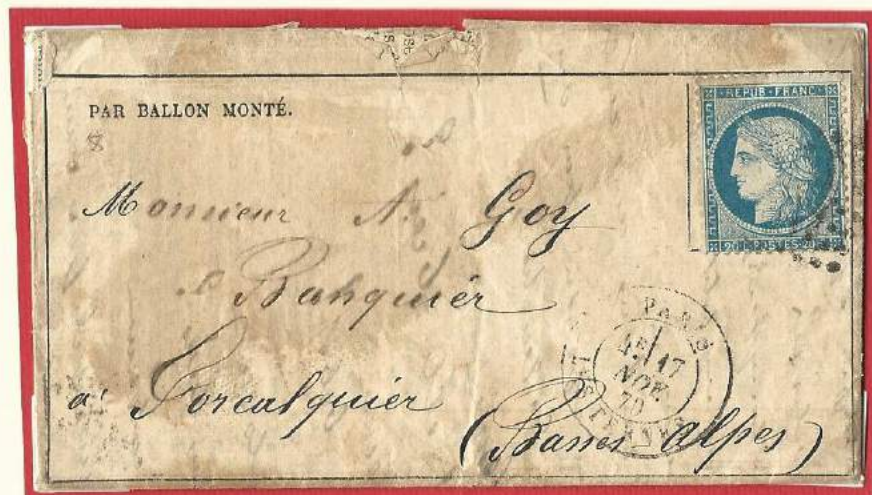 PAR BALLON MONTÉ.
REPUB·FRANC
20 C·POSTES·20
Monsieur A. Goy
Banquier
à Forcalquier
(Basses Alpes)
PARIS
4E 17
NOV.
70